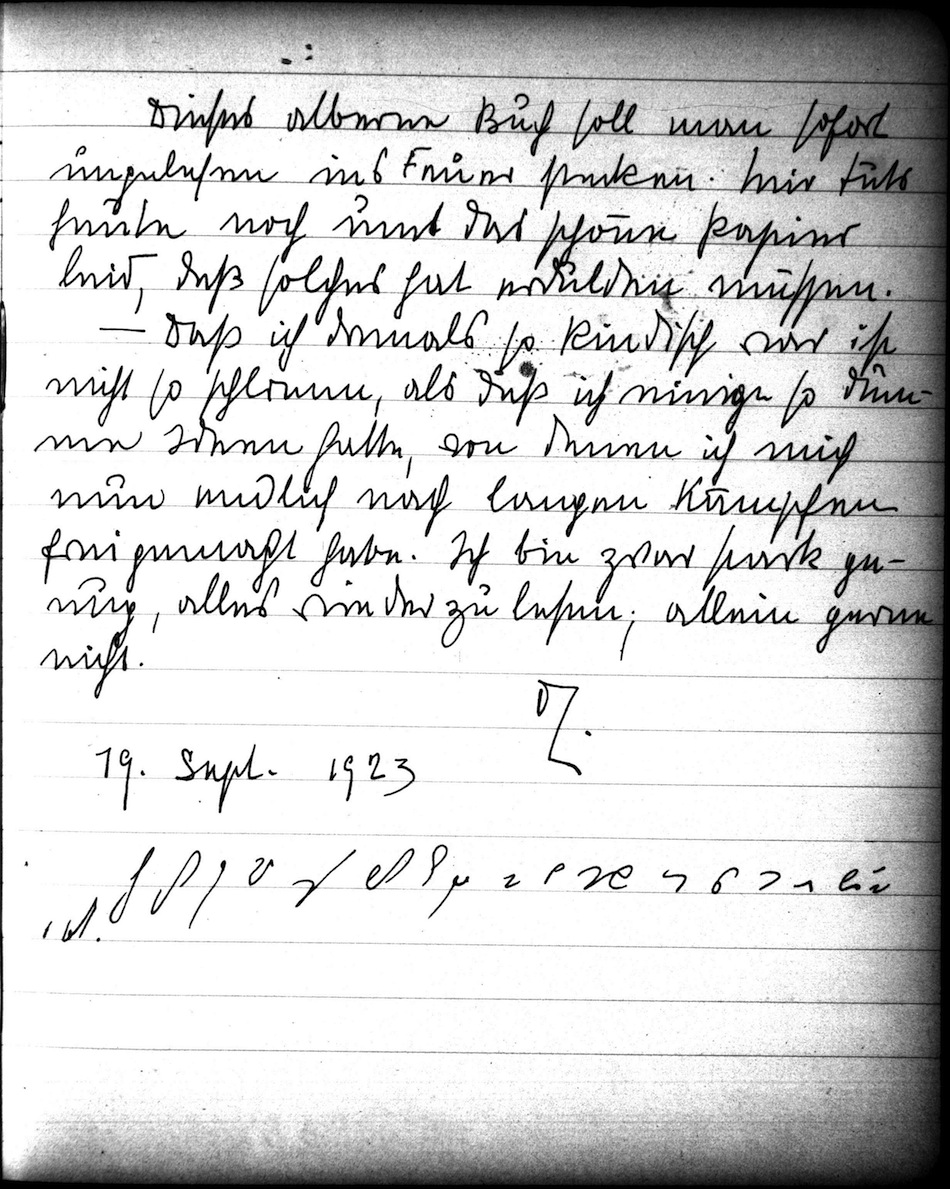 Dieses alberne Buch soll man sofort
ungelesen ins Feuer stecken. Mir tuts
heute noch ums das schöne Papier
leid, daß solches hat erdulden müssen.
— Daß ich damals so kindisch war ist
nicht so schlimm, als daß ich einige so dum-
me Ideen hatte, von denen ich mich
nun endlich nach langen Kämpfen
freigemacht habe. Ich bin zwar stark ge-
nug, alles wieder zu lesen; allein gerne
nicht.
19. Sept. 1923